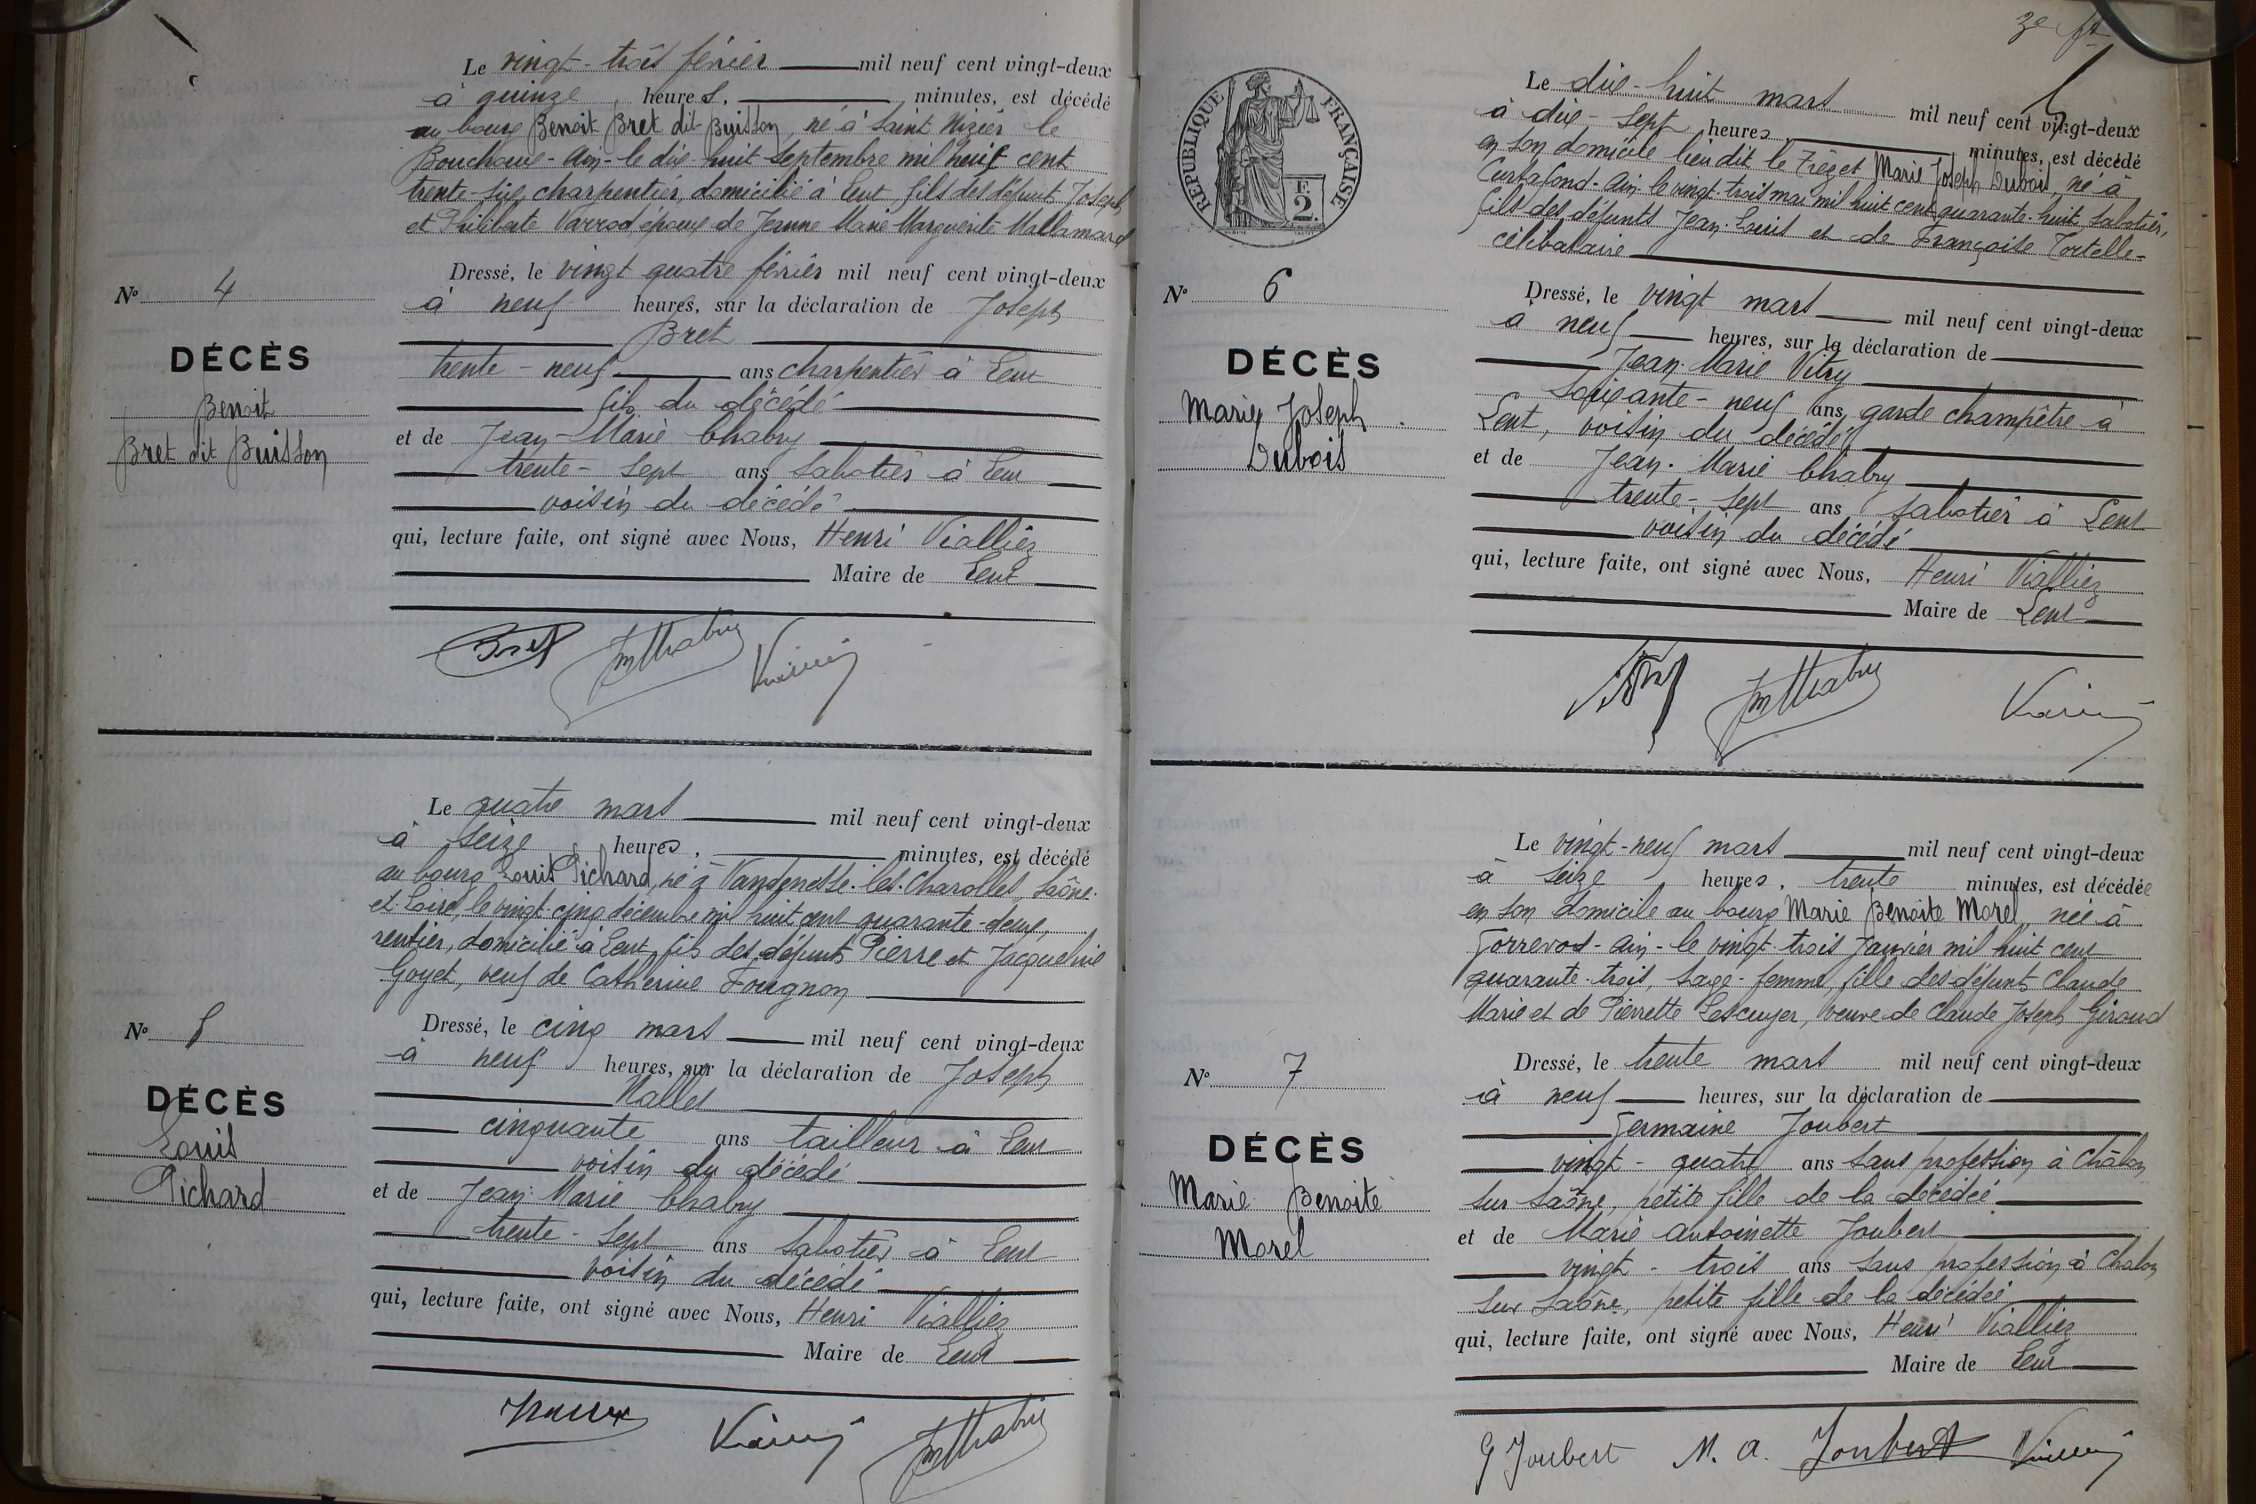 Le vingt-trois février mil neuf cent vingt-deux
à quinze heures, minutes, est décédé
au bourg Benoit Bret dit Buisson, né à Saint Nizier le
Bouchoux - Ain - le dix-huit septembre mil huit cent
trente-six, charpentier, domicilié à Lent, fils des défunts Joseph
et Philiberte Varrod époux de Jeanne Marie Marguerite Mallamard
Nº 4
DÉCÈS
Benoit
Bret dit Buisson
Dressé, le vingt quatre février mil neuf cent vingt-deux
à neuf heures, sur la déclaration de Joseph
Bret
trente-neuf ans charpentier à Lent
fils du décédé
et de Jean-Marie Chabry
trente-sept ans sabotier à Lent
voisin du décédé
qui, lecture faite, ont signé avec Nous, Henri Viallier
Maire de Lent
Bret JMChabry
Le quatre mars mil neuf cent vingt-deux
à seize heures, minutes, est décédé
au bourg Louis Pichard, né à Vandenesse-les-Charolles, Saône-
et-Loire, le vingt-cinq décembre mil huit cent quarante-deux,
rentier, domicilié à Lent, fils des défunts Pierre et Jacqueline
Goyet, veuf de Catherine Fougnon
Nº 5
DÉCÈS
Louis
Pichard
Dressé, le cinq mars mil neuf cent vingt-deux
à neuf heures, sur la déclaration de Joseph
Mallet
cinquante ans tailleur à Lent
voisin du décédé
et de Jean-Marie Chabry
trente-sept ans sabotier à Lent
voisin du décédé
qui, lecture faite, ont signé avec Nous, Henri Viallier
Maire de Lent
JMChabry
3e ft
RÉPUBLIQUE FRANÇAISE
2 F.
Le dix-huit mars mil neuf cent vingt-deux
à dix-sept heures, minutes, est décédé
en son domicile lieu dit le Marie Joseph Dubois, né à
Curtafond - Ain - le vingt-trois mai mil huit cent quarante-huit, sabotier,
fils des défunts Jean-Louis et de Françoise Tortelle-
célibataire
Nº 6
DÉCÈS
Marie Joseph
Dubois
Dressé, le vingt mars mil neuf cent vingt-deux
à neuf heures, sur la déclaration de
Jean-Marie Vitry
soixante-neuf ans, garde champêtre à
Lent, voisin du décédé
et de Jean-Marie Chabry
trente-sept ans sabotier à Lent
voisin du décédé
qui, lecture faite, ont signé avec Nous, Henri Viallier
Maire de Lent
JMChabry
Le vingt-neuf mars mil neuf cent vingt-deux
à seize heures, trente minutes, est décédée
en son domicile au bourg Marie Benoite Morel, née à
Gorrevod - Ain - le vingt-trois janvier mil huit cent
quarante-trois, sage-femme, fille des défunts Claude
Marie et de Pierrette Lescuyer, veuve de Claude Joseph Giroud
Nº 7
DÉCÈS
Marie Benoite
Morel
Dressé, le trente mars mil neuf cent vingt-deux
à neuf heures, sur la déclaration de
Germaine Joubert
vingt-quatre ans sans profession à Châlon
sur Saône, petite fille de la décédée
et de Marie Antoinette Joubert
vingt-trois ans sans profession à Chalon
sur Saône, petite fille de la décédée
qui, lecture faite, ont signé avec Nous, Henri Viallier
Maire de Lent
G Joubert M. A. Joubert